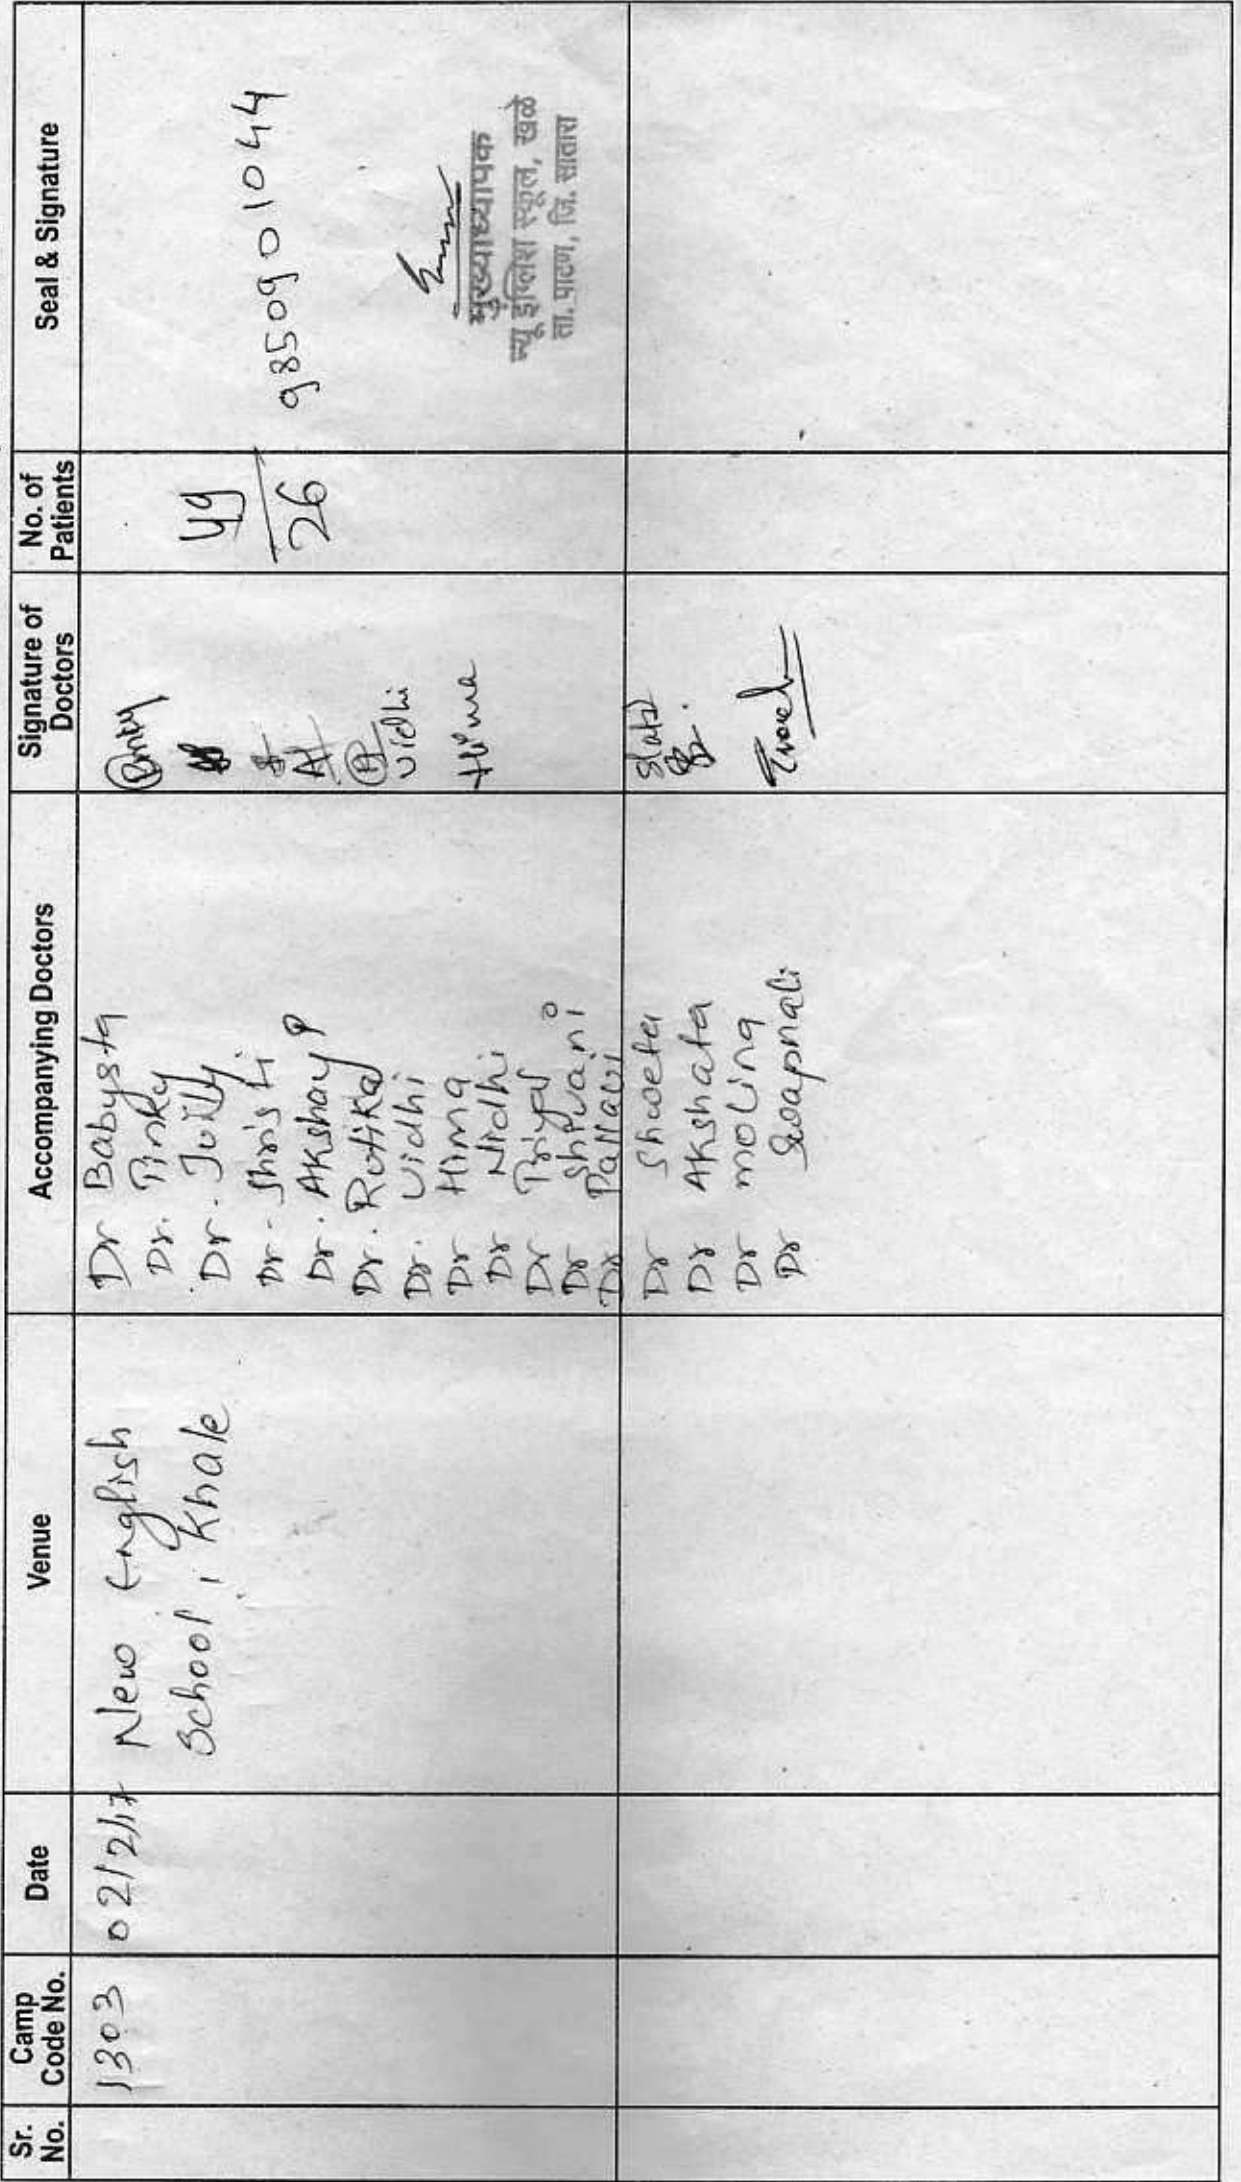 Sr. No.
Camp Code No.
Date
Venue
Accompanying Doctors
Signature of Doctors
No. of Patients
Seal & Signature
1303
02/2/17
New English
School, Khale
Dr Babysta
Dr. Pinky
Dr. Juily
Dr. Shristi
Dr. Akshay P
Dr. Rutika
Dr. Vidhi
Dr Hima
Dr Nidhi
Dr Priya
Dr Shivani
Dr Pallavi
Vidhi
Hima
49
26
9850901044
मुख्याध्यापक
न्यू इंग्लिश स्कूल, खळे
ता. पाटण, जि. सातारा
Dr Shweta
Dr Akshata
Dr molina
Dr Swapnali